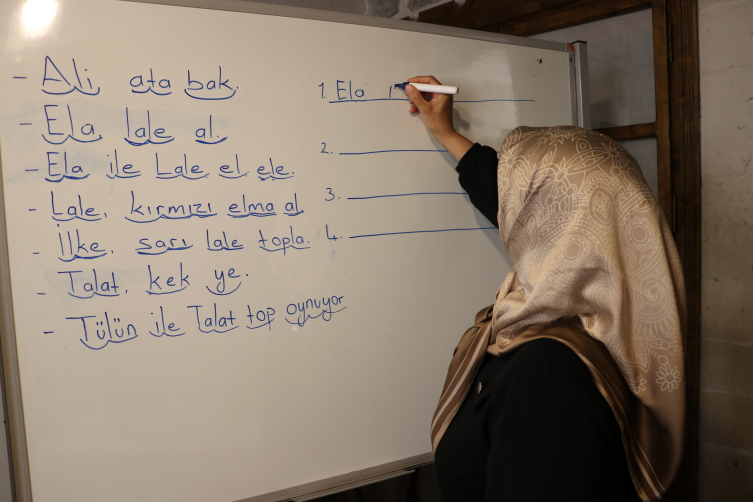 - Ali ata bak.
- Ela lale al.
- Ela ile Lale el ele.
- Lale, kırmızı elma al
- İlke, sarı lale topla.
- Talat, kek ye.
- Tülün ile Talat top oynuyor
1. Ela
2.
3.
4.